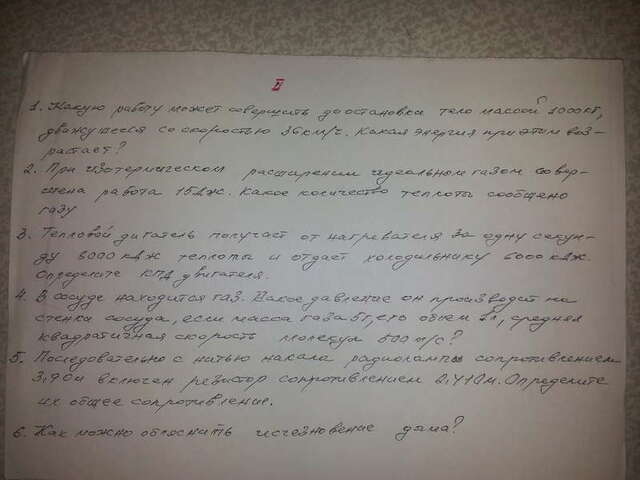 II
1. Какую работу может совершить до остановки тело массой 1000кг,
движущееся со скоростью 36км/ч. Какая энергия при этом воз-
растает?
2. При изотермическом расширении идеальным газом совер-
шена работа 15кДж. Какое количество теплоты сообщено
газу
3. Тепловой дигатель получает от нагревателя за одну секун-
ду 8000кДж теплоты и отдает холодильнику 6000кДж.
Определите КПД двигателя.
4. В сосуде находится газ. Какое давление он производит на
стенки сосуда, если масса газа 5г, его объем 1л, средняя
квадратичная скорость молекул 500м/с?
5. Последовательно с нитью накала радиолампы сопротивлением
3,9Ом включен резистор сопротивлением 2,41Ом. Определите
их общее сопротивление.
6. Как можно объяснить исчезновение дыма?